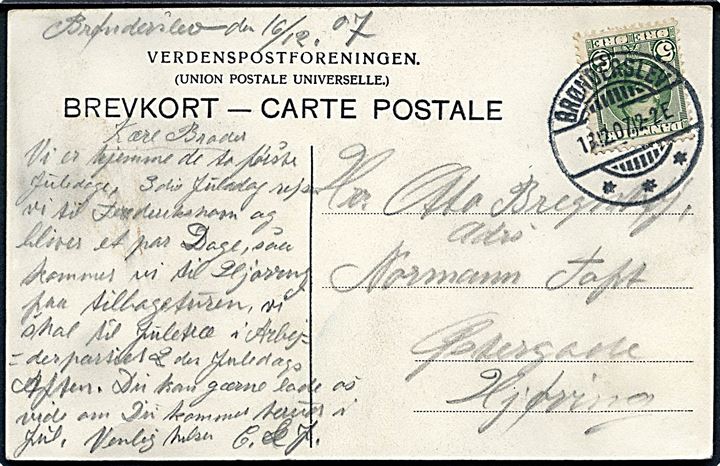 Brønderslev den 16/12. 07
VERDENSPOSTFORENINGEN.
(UNION POSTALE UNIVERSELLE.)
BREVKORT — CARTE POSTALE
Kære Broder
Vi er hjemme de to første
Juledage, 3die Juledag rejser
vi til Frederikshavn og
bliver et par Dage, saa
kommer vi til Hjøring
paa tilbageturen, vi
skal til Juletræ i Arbej-
=derpartiet 2 den Juledags
Aften. Du kan gærne lade os
vide om Du kommer herud i
Jul. Venlig hilsen C. L. J.
Hr. Otto
Adrs
Normann Toft
Østergade
Hjøring
5 ØRE ØRE 5
DANMARK
BRØNDERSLEV
12.07 2-2E